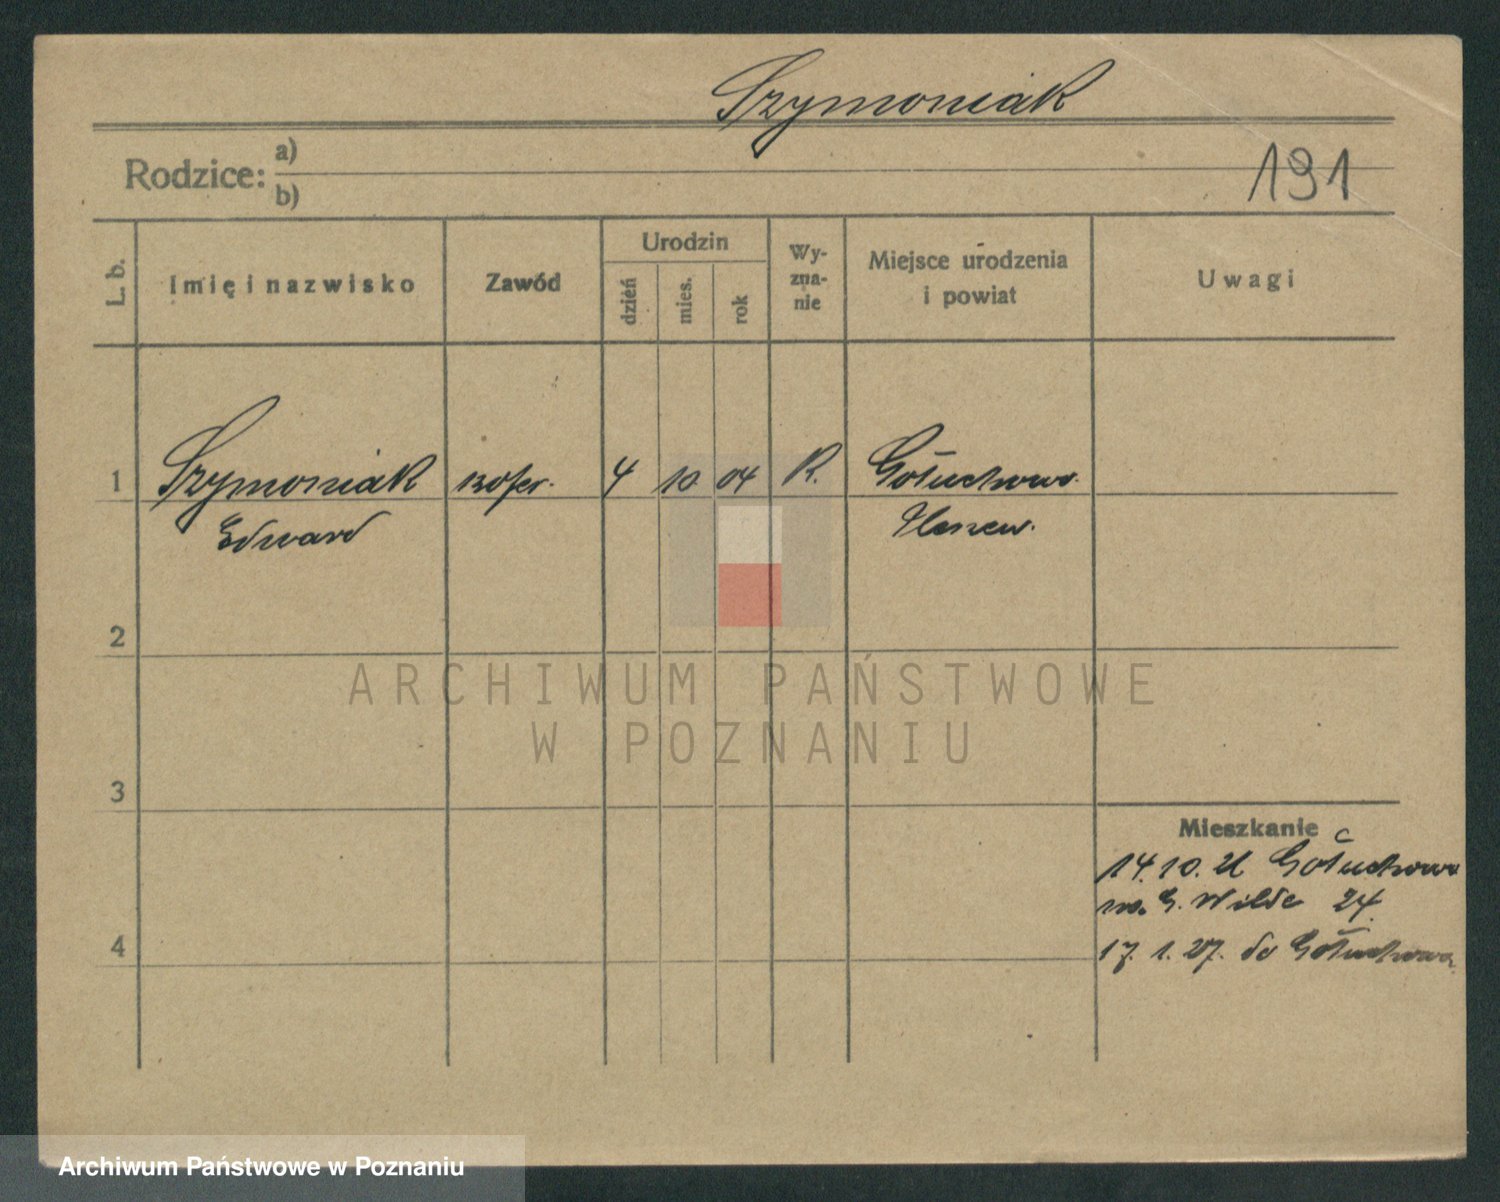 Szymoniak
Rodzice: a)
b)
191
L. b.
Imię i nazwisko
Zawód
Urodzin
dzień
mies.
rok
Wy-
zna-
nie
Miejsce urodzenia
i powiat
Uwagi
1
Szymoniak
Edward
4
10
04
R.
Gołuchowo.
2
3
4
Mieszkanie
14.10.21 Gołuchowo
G. Wilde 24
17. 1. 27. do Gołuchowa
ARCHIWUM PAŃSTWOWE
W POZNANIU
Archiwum Państwowe w Poznaniu